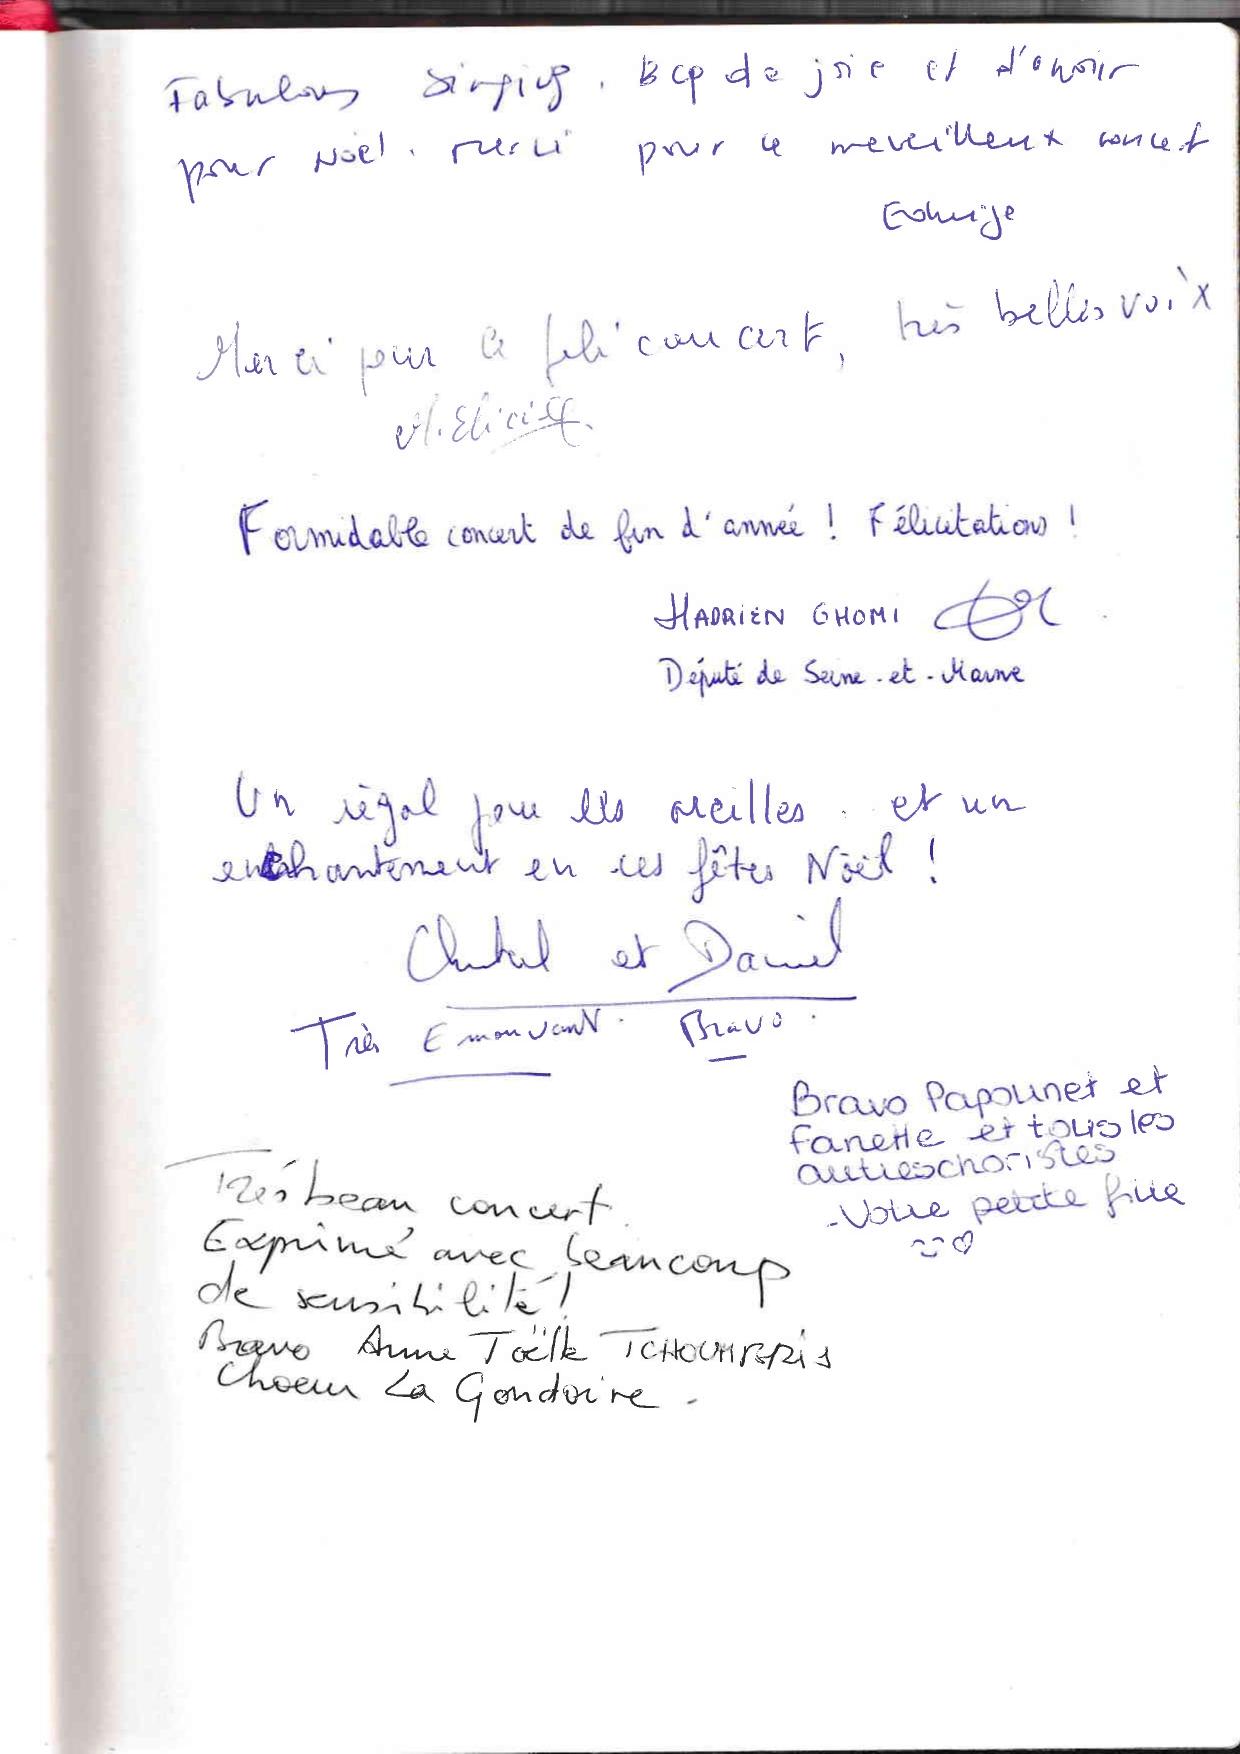 Fabulous singing. Bcp de joie et d'espoir
pour Noël. Merci pour ce merveilleux concert
Edwige
Merci pour ce joli concert, très belles voix
Formidable concert de fin d'année ! Félicitations !
HADRIEN GHOMI
Député de Seine-et-Marne
Un régal pour les oreilles. et un
enchantement en ces fêtes Noël !
Chantal et Daniel
Très Emouvant. Bravo.
Bravo Papounet et
Fanette et tous les
autres choristes
-Votre petite fille
Très beau concert.
Exprimé avec beaucoup
de sensibilité !
Bravo Anne Joëlle
Choeur La Gondoire.